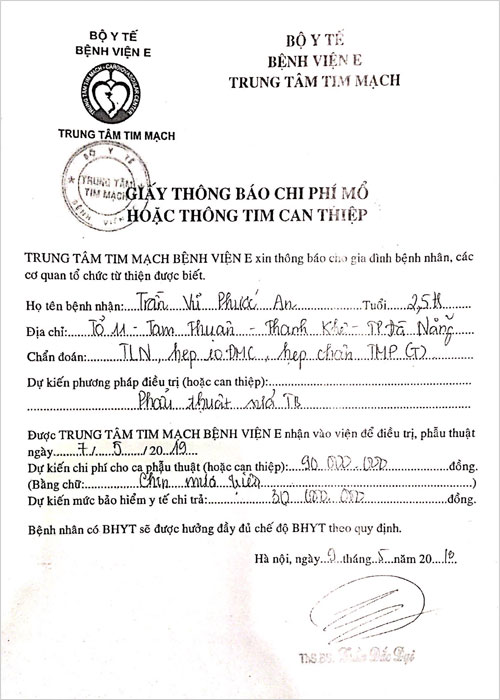 BỘ Y TẾ
BỆNH VIỆN E
TRUNG TÂM TIM MẠCH - CARDIOVASCULAR CENTER
TRUNG TÂM TIM MẠCH
BỘ Y TẾ
BỆNH VIỆN E
TRUNG TÂM TIM MẠCH
BỘ Y TẾ
TRUNG TÂM
TIM MẠCH
GIẤY THÔNG BÁO CHI PHÍ MỔ
HOẶC THÔNG TIM CAN THIỆP
TRUNG TÂM TIM MẠCH BỆNH VIỆN E xin thông báo cho gia đình bệnh nhân, các
cơ quan tổ chức từ thiện được biết.
Họ tên bệnh nhân: Trần Vũ Phước An Tuổi 2,5th
Địa chỉ: Tổ 11 - Tam Thuận - Thanh Khê - TP Đà Nẵng
Chẩn đoán: TLN, hẹp eo ĐMC, hẹp chân TMP (T)
Dự kiến phương pháp điều trị (hoặc can thiệp):
Phẫu thuật
Được TRUNG TÂM TIM MẠCH BỆNH VIỆN E nhận vào viện để điều trị, phẫu thuật
ngày 7/ 5 /2019
Dự kiến chi phí cho ca phẫu thuật (hoặc can thiệp): 90.000.000 đồng.
(Bằng chữ: Chín mươi triệu)
Dự kiến mức bảo hiểm y tế chi trả: 30.000.000 đồng.
Bệnh nhân có BHYT sẽ được hưởng đầy đủ chế độ BHYT theo quy định.
Hà nội, ngày 9 tháng 5 năm 2019
ThS.BS. Trần Đắc Đại